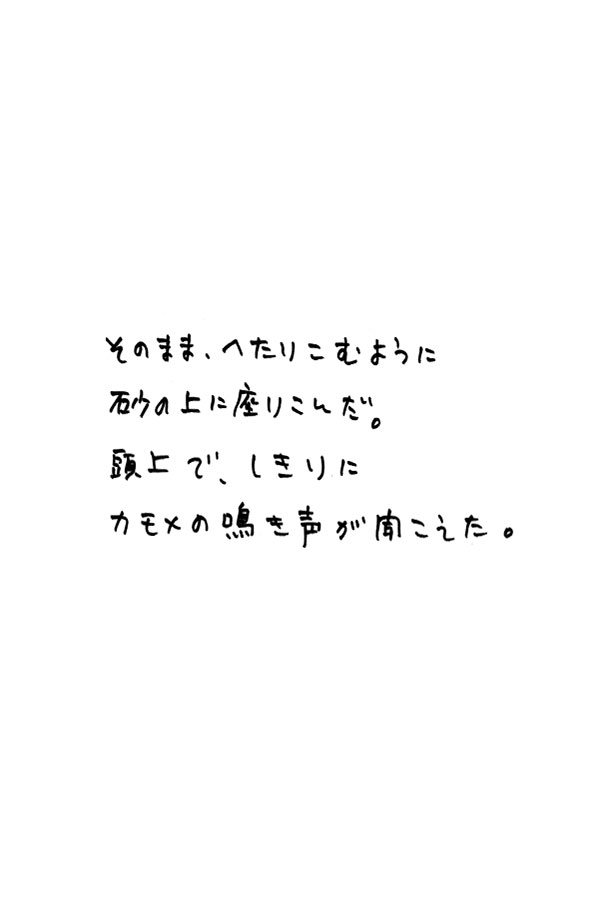 そのまま、へたりこむように
砂の上に座りこんだ。
頭上で、しきりに
カモメの鳴き声が聞こえた。